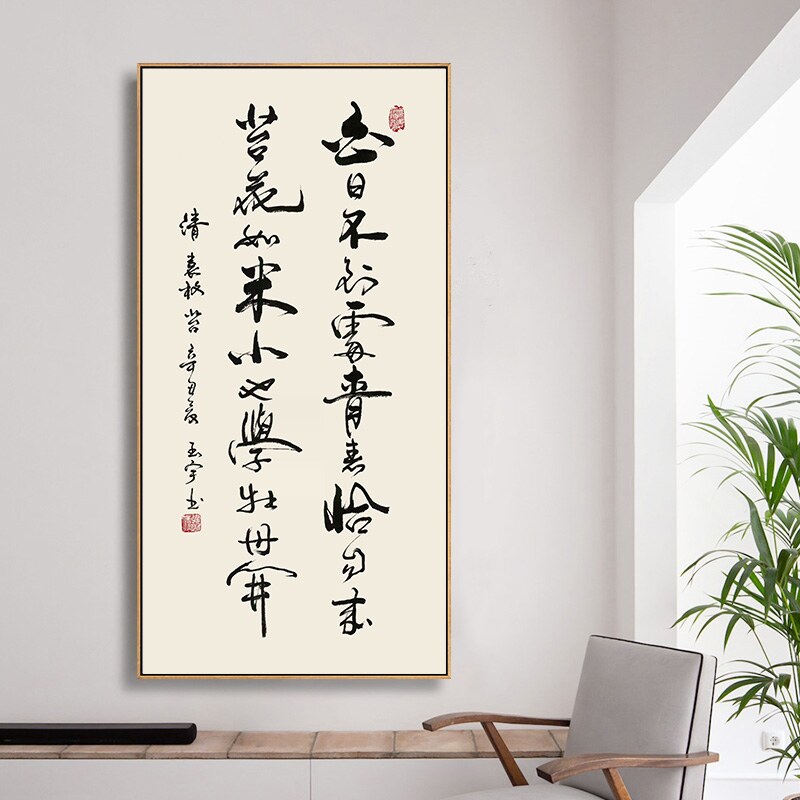 白日不到處青春恰自来
苔花如米小也學牡丹開
清袁枚苔辛丑夏玉宇书